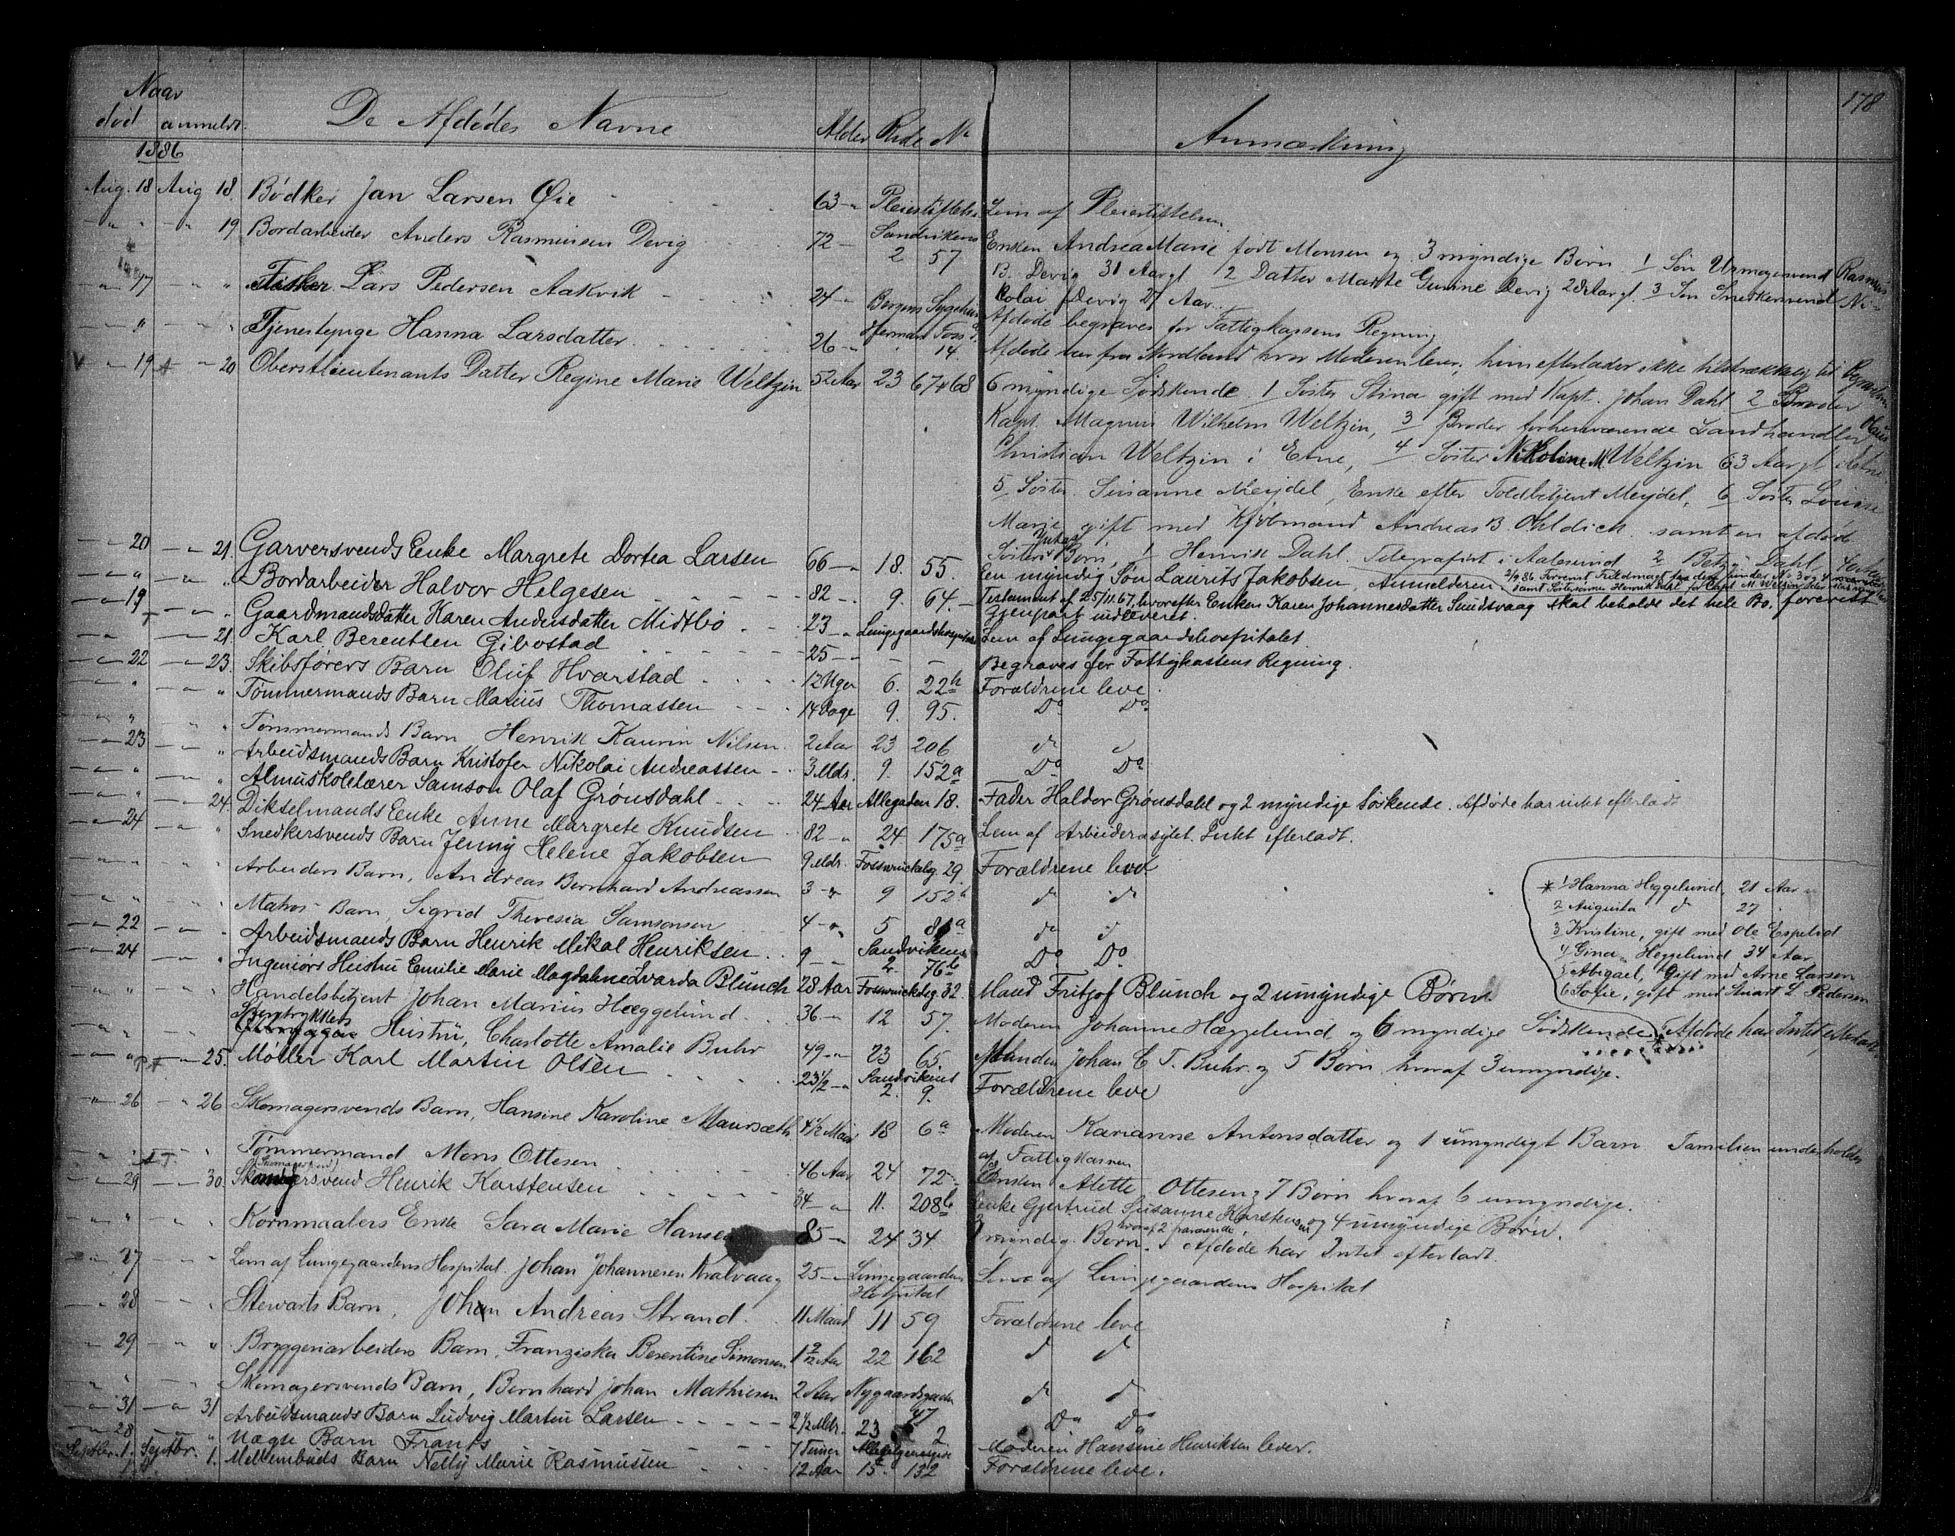 178
Naar
død anmeldt. De Afdødes Navne Alder Rode No Anmærkning
1886
Aug. 18 Aug 18. Bødker Jan Larsen Øie 63 Pleiestiftelse Lem af Pleiestiftelsen
19. Bordarbeider Anders Rasmussen Devig 72 Sandvikens 2 57 Enken Andrea Marie født Monsen og 3 myndige Børn 1 Søn Urmagersvend Rasmus
B. Devig 31 Aar gl 2 Datter Marte Gurine Devig 28 Aar gl. 3 Søn Snedkersvend Ni-
kolai Devig 27 Aar.
17 Fisker Lars Pedersen Aakvik 24 Bergens Sygehus Afdøde begraves for Fattigkassens Regning
Tjenestepige Hanna Larsdatter 26 Herman Foss G. 14. Afdøde var fra Nordland hvor Moderen lever, hun efterlader ikke tilstrækkelig til Begravelsen
19 20 Oberstlieutenants Datter Regine Marie Weltzin 52 Aar 23 67 & 68 6 myndige Sødskende 1 Søster Stina gift med Kapt. Johan Dahl 2 Broder
Kapt. Magnus Wilhelm Weltzin, 3 Broder forhenværende Landhandler Claus
Christian Weltzin i Etne, 4 Søster Nikoline M. Weltzin 63 Aar gl
5 Søster Susanne Meydel, Enke efter Toldbetjent Meydel, 6 Søster Louise
Marie gift med Kjøbmand Andreas B. Ohldick samt en afdød
Søsters Børn, 1 Henrik Dahl Telegrafist i Aalesund 2 Betzy Dahl
20 21. Garversvends Enke Margrete Dortea Larsen 66 18. 55. En myndig Søn Laurits Jakobsen, Anmelderen
Bordarbeider Halvor Helgesen 82 9. 64. Testament af 25/11.67, hvorefter Enken Karen Johannesdatter Sundsvaag skal beholde det hele Bo. forevist
Gjenpart indleveret.
19 Gaardmandsdatter Karen Andersdatter Midtbø 23 Lungegaardshospitalet Lem af Lungegaardshospitalet
21. Karl Berentsen Gibostad 25 Begraves for Fattigkassens Regning.
22 23. Skibsførers Barn Oluf Hvarstad 12 Uger 6. 22b Forældrene leve.
Tømmermands Barn Marius Thomassen 14 Dage 9. 95. Do Do
Tømmermands Barn Henrik Kaurin Nilsen. 2 Aar 23 206 do do
23 Arbeidsmands Barn Kristofer Nikolai Andreassen 3 Mdr. 9. 152a Do Do
Almuskolelærer Samson Olaf Grønsdahl 24 Aar Allegaden 18. Fader Haldor Grønsdahl og 2 myndige Søskende. Afdøde har intet efterladt
24. Dikselmands Enke Anne Margrete Knudsen 82 24 175a Lem af Arbeiderasylet. Intet efterladt.
24 Snedkersvends Barn Jenny Helene Jakobsen 9 Mdr. Fosswinckelsg 29. Forældrene leve
Arbeiders Barn, Andreas Bernhard Andreassen 3 9 152b do do
Matros Barn, Sigrid Theresia Samsonsen 4 5 81a do do
22 Arbeidsmands Barn Henrik Mikal Henriksen. 9 Sandvikens 2. 76b Do Do
24 Ingeniørs Hustru Emilie Marie Magdalene Zvarda Blunck 28 Aar Fosswinckelsg 32. Mand Fritjof Blunck og 2 umyndige Børn
* 1 Hanna Heggelund, 21 Aar
2 Augusta do 27
3 Kristine, gift med Ole Espelid
4 Gina Heggelund 34 Aar
5 Abigael, Gift med Arne Larsen
6 Sofie, gift med Stuart L Pedersen
Handelsbetjent Johan Marius Hæggelund 36 12 57. Moderen Johanne Hæggelund og 6 myndige Sødskende * Afdøde har Intet efterladt
Bogtrykkers Hustru, Charlotte Amalie Buhr 49 23 65. Manden Johan C. T. Buhr og 5 Børn hvoraf 3 umyndige.
25. Møller Karl Martin Olsen 23 1/2 Sandvikens 2. 9. Forældrene leve
26 26 Skomagersvends Barn, Hansine Karoline Maursæth 4 1/2 Maan 18 6a Moderen Karianne Antonsdatter og 1 umyndigt Barn Familien underholdes
af Fattigkassen
Tømmermand Mons Ottesen 46 Aar 24 72 Enken Alette Ottesen og 7 Børn hvoraf 6 umyndige.
29 30. Henrik Karstensen 34 11. 208b Enke Gjertrud Susanne Karstensen og 4 umyndige Børn.
Kornmaalers Enke Sara Marie Hansen 85 24 34 myndig Børn. Afdøde har Intet efterladt.
27 Lem af Lungegaardens Hospital. Johan Johannesen Kvalvaag 25 Lungegaardens Hospital Lem af Lungegaardens Hospital
28 Stewarts Barn, Johan Andreas Strand. 11 Maad 11 59 Forældrene leve
29 Bryggeriarbeiders Barn, Franziska Berentine Simonsen 1 2/12 Aar 22 162 do do
Skomagersvends Barn, Bernhard Johan Mathiesen 2 Aar Nygaardsgaden 47 do do
31 31 Arbeidsmands Barn Ludvig Martin Larsen 2 1/2 Mdr. 23 2 Do Do
28 Uægte Barn Frants 7 Timer Moderen Hansine Henriksen lever.
Septbr. 1. Septbr. 1. Mellembuds Barn Nelly Marie Rasmussen 12 Aar 15. 132 Forældrene leve.